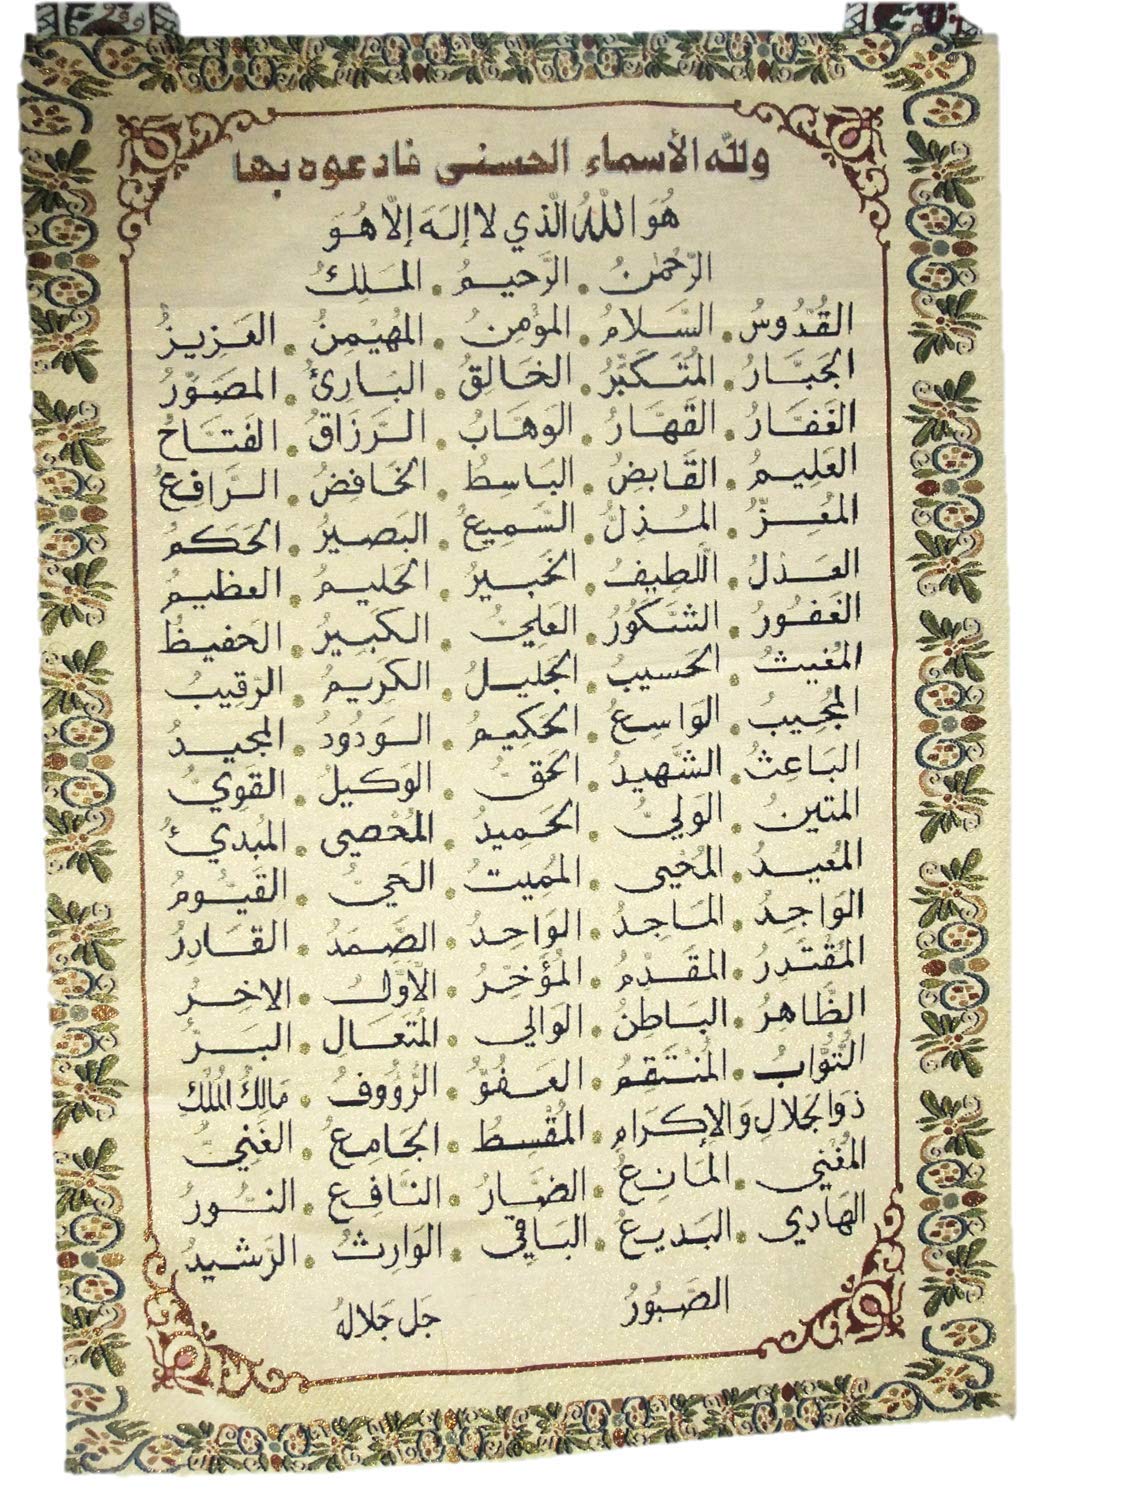 ولله الأسماء الحسنى فادعوه بها
هُوَ اللهُ الَّذي لا إلهَ إلَّا هُوَ
الرَّحمٰنُ . الرَّحيمُ . المَلِكُ
القُدُّوسُ . السَّلامُ . المؤمِنُ . المُهَيْمِنُ . العَزيزُ
الجَبَّارُ . المُتَكَبِّرُ . الخَالِقُ . البَارِئُ . المصَوِّرُ
الغَفَّارُ . القَهَّارُ . الوَهَابُ . الرَزَاقُ . الفَتَّاحُ
العَلِيمُ . القَابِضُ . البَاسِطُ . الخَافِضُ . الرَّافِعُ
المُعِزُّ . المُذِلُّ . السَّمِيعُ . البَصيرُ . الحَكَمُ
العَدْلُ . اللَّطِيفُ . الخَبيرُ . الحَليمُ . العظيمُ
الغَفُورُ . الشَكُورُ . العَلِيُّ . الكَبِيرُ . الحَفيظُ
المُغيثُ . الحَسيبُ . الجَليلُ . الكَرِيمُ . الرَقِيبُ
المُجِيبُ . الوَاسِعُ . الحَكِيمُ . الوَدُودُ . المجيدُ
البَاعِثُ . الشَّهيدُ . الحَقُّ . الوَكيلُ . القَوِيُّ
المتينُ . الوَلِيُّ . الحَميدُ . المُحْصِي . المُبدِيُ
المُعيدُ . المُحْيِي . المُمِيتُ . الحَيُّ . القَيُّومُ
الوَاجِدُ . المَاجِدُ . الوَاحِدُ . الصَّمَدُ . القَادِرُ
المُقْتَدِرُ . المقَدِّمُ . المُؤَخِّرُ . الأوَّلُ . الاخِرُ
الظَّاهِرُ . البَاطِنُ . الوَالي . المُتَعَالِ . البَرُّ
التَّوَّابُ . المُنْتَقِمُ . العَفُوُّ . الرَّؤُوفُ . مَالِكُ المُلْكِ
ذوَ الجَلالِ وَالإكرَامِ . المُقْسِطُ . الجَامِعُ . الغَنِيُّ
المُغْنِي . المَانِعُ . الضَّارُ . النَّافِعُ . النُّورُ
الهَادِي . البَديعُ . البَاقِي . الوَارِثُ . الرَشيدُ
الصَبُورُ جَل جَلالهُ